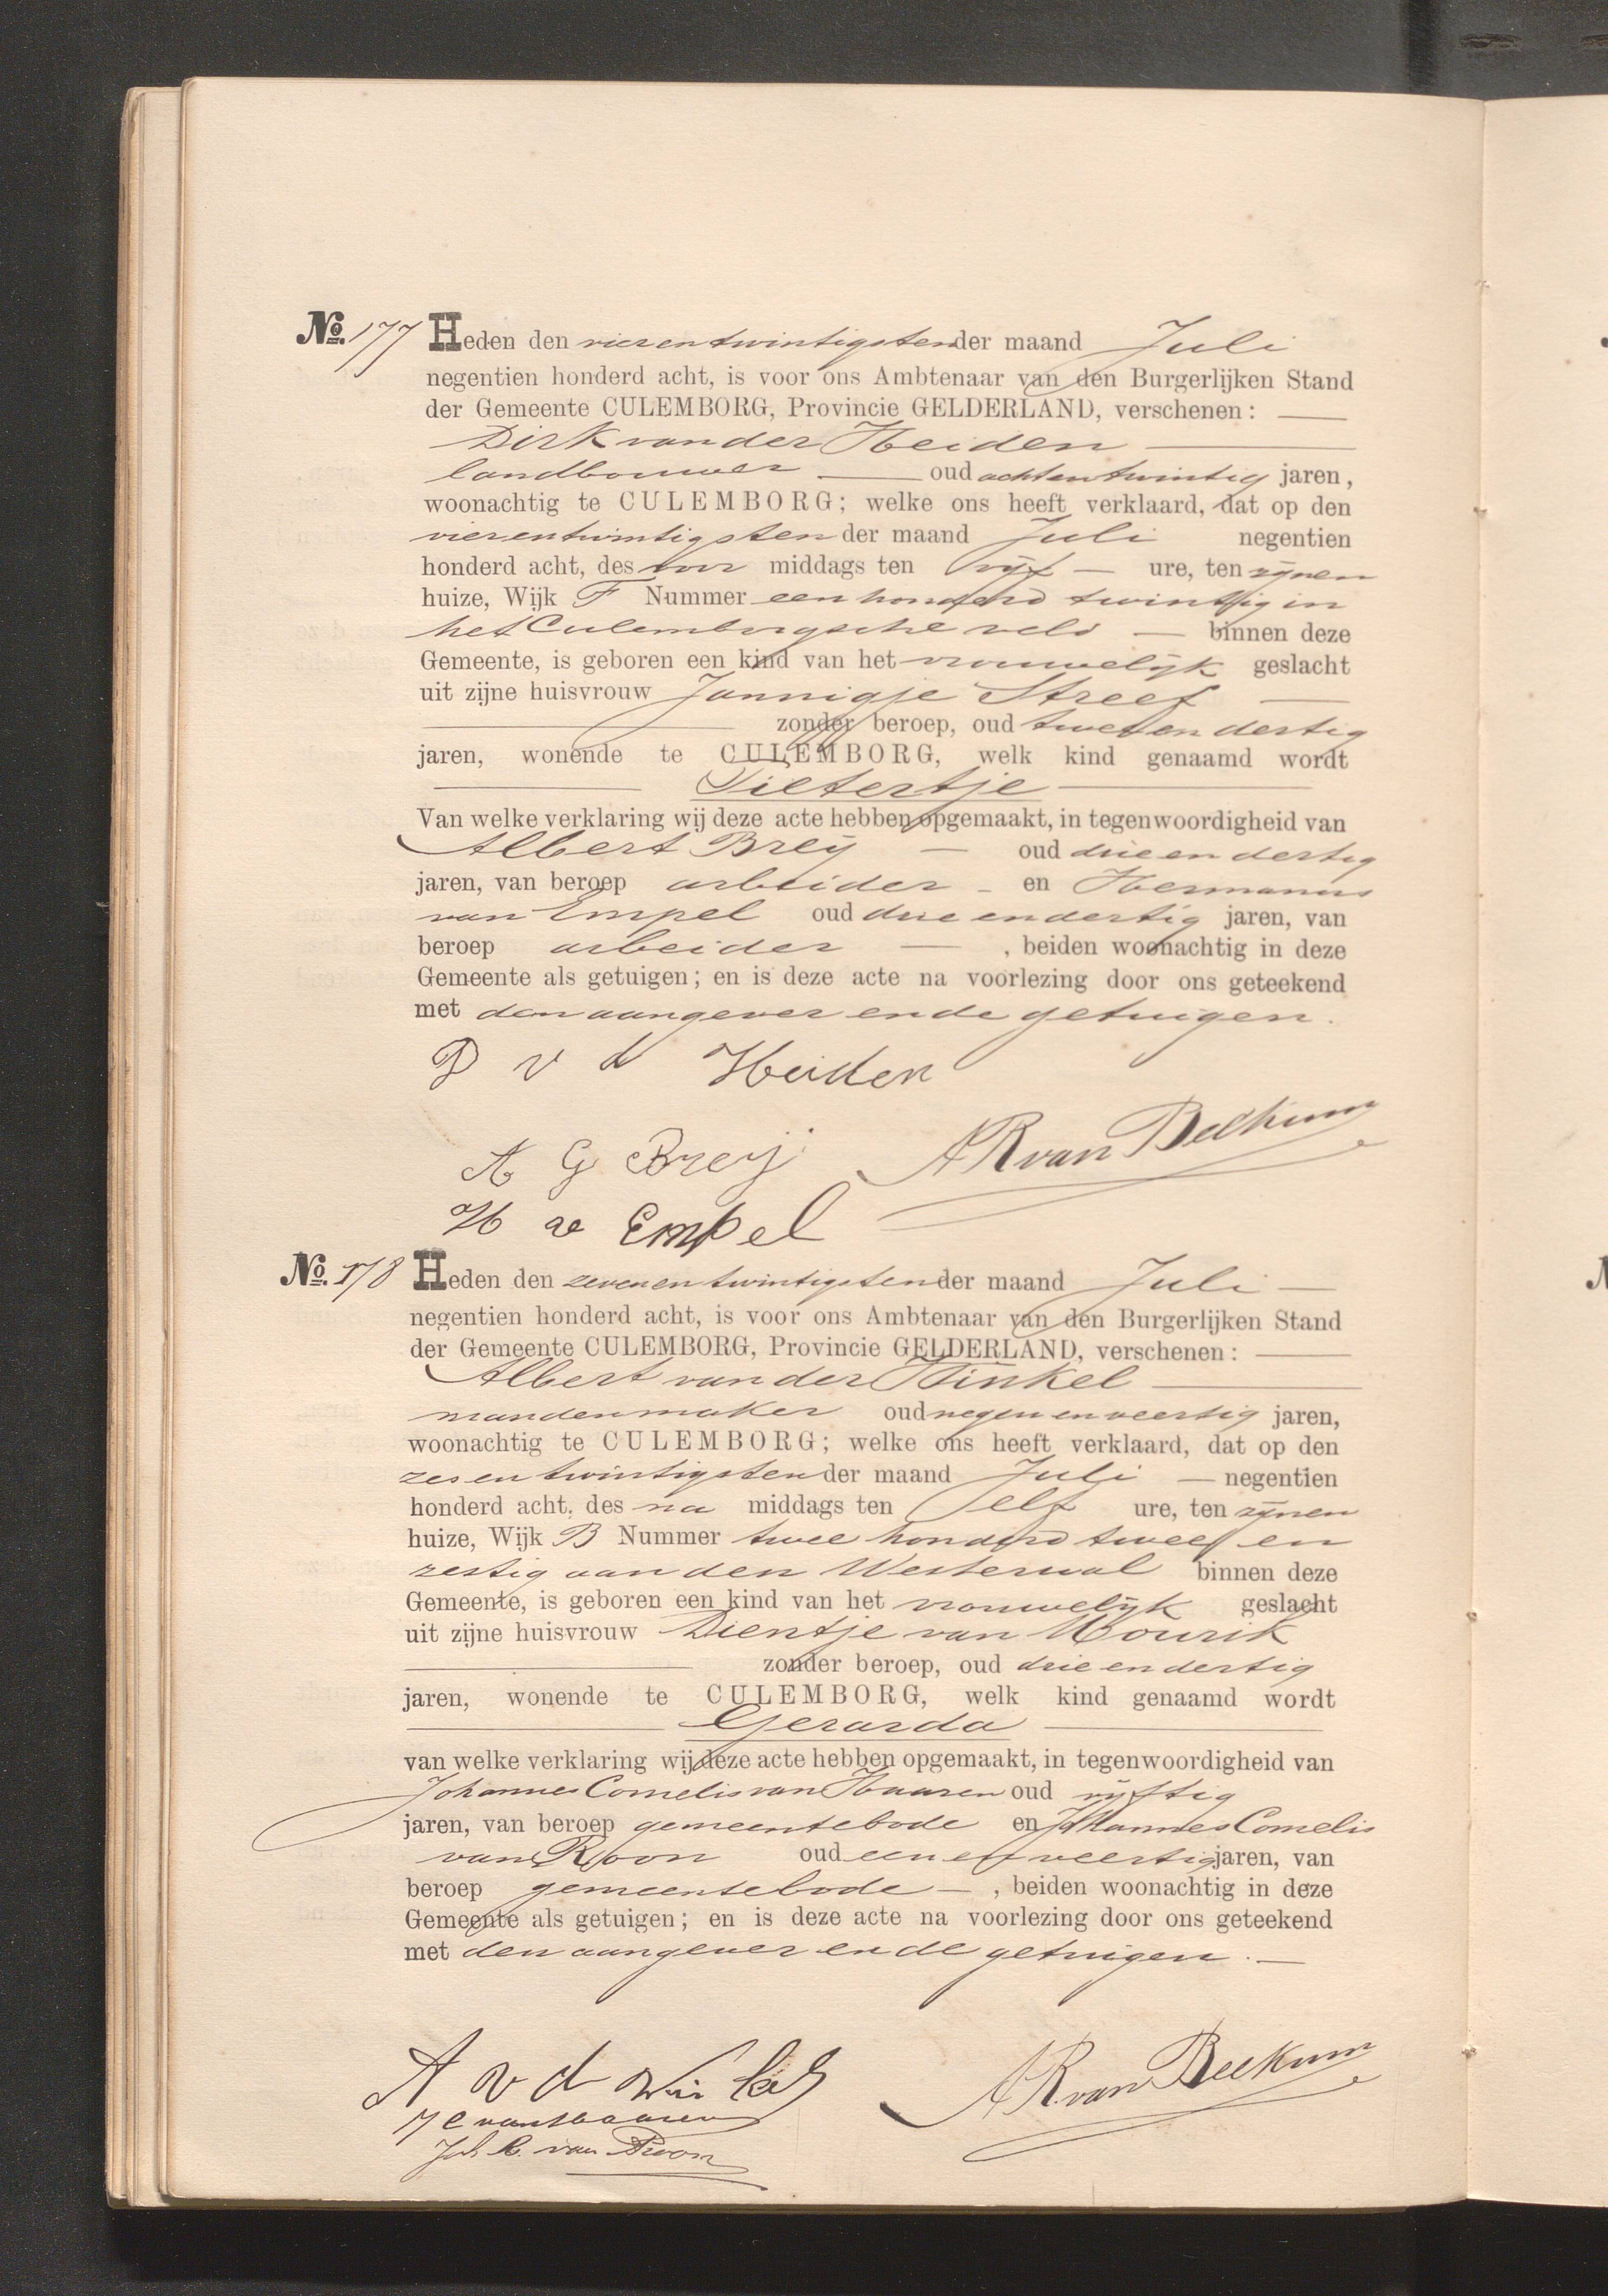 No. 177 Heden den vierentwintigsten der maand Juli
negentien honderd acht, is voor ons Ambtenaar van den Burgerlijken Stand
der Gemeente CULEMBORG, Provincie GELDERLAND, verschenen:
Dirk van der Heiden
landbouwer oud achtentwintig jaren,
woonachtig te CULEMBORG; welke ons heeft verklaard, dat op den
vierentwintigsten der maand Juli negentien
honderd acht, des voor middags ten vijf ure, ten zijnen
huize, Wijk F Nummer een honderd twintig in
het Culemborgsche veld binnen deze
Gemeente, is geboren een kind van het vrouwelijk geslacht
uit zijne huisvrouw Jannigje Streef
zonder beroep, oud twee en dertig
jaren, wonende te CULEMBORG, welk kind genaamd wordt
Pietertje
Van welke verklaring wij deze acte hebben opgemaakt, in tegenwoordigheid van
Albert Breij oud drie en dertig
jaren, van beroep arbeider en Hermanus
van Empel oud drie en dertig jaren, van
beroep arbeider, beiden woonachtig in deze
Gemeente als getuigen; en is deze acte na voorlezing door ons geteekend
met den aangever en de getuigen.
D v d Heiden
A G Breij AR van Beekum
H v Empel
No. 178 Heden den zevenentwintigsten der maand Juli
negentien honderd acht, is voor ons Ambtenaar van den Burgerlijken Stand
der Gemeente CULEMBORG, Provincie GELDERLAND, verschenen:
Albert van der Winkel
mandenmaker oud negen en veertig jaren,
woonachtig te CULEMBORG; welke ons heeft verklaard, dat op den
zesentwintigsten der maand Juli negentien
honderd acht, des na middags ten elf ure, ten zijnen
huize, Wijk B Nummer twee honderd twee en
zestig aan den Westerwal binnen deze
Gemeente, is geboren een kind van het vrouwelijk geslacht
uit zijne huisvrouw Dientje van Mourik
zonder beroep, oud drie en dertig
jaren, wonende te CULEMBORG, welk kind genaamd wordt
Gerarda
van welke verklaring wij deze acte hebben opgemaakt, in tegenwoordigheid van
Johannes Cornelis van Haaren oud vijftig
jaren, van beroep gemeentebode en Johannes Cornelis
van Roon oud een en veertig jaren, van
beroep gemeentebode, beiden woonachtig in deze
Gemeente als getuigen; en is deze acte na voorlezing door ons geteekend
met den aangever en de getuigen.
A v d Winkel AR van Beekum
J C van Haaren
Joh C. van Roon